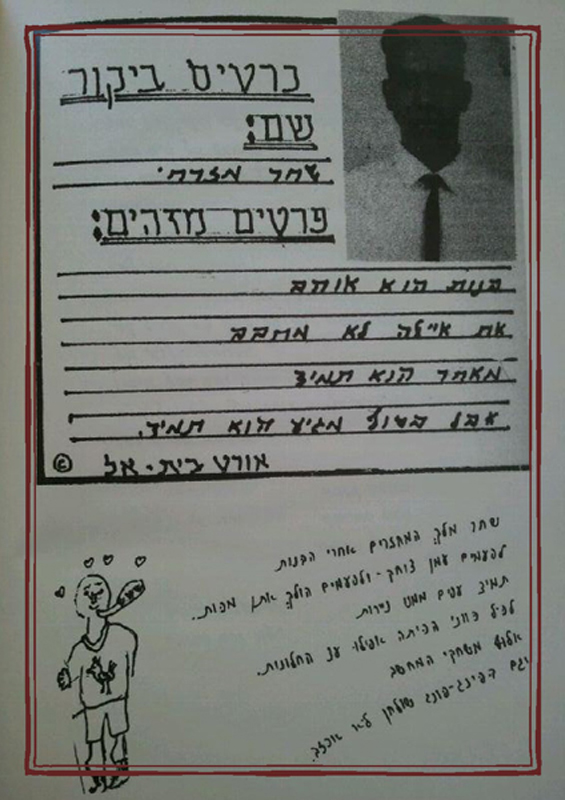 כרטיס ביקור
שם:
שחר מזרחי.
פרטים מזהים:
בנות הוא אוהב
את איילה לא מחבב
מאחר הוא תמיד
אבל בסוף מגיע הוא תמיד.
© אורט בית-אל
שחר מלך המחזרים אחרי הבנות
לפעמים צוחק - ולפעמים הולך מכות.
תמיד
לכל כווני הכיתה אפילו על החלונות.
אלוף משחקי המחשב
וגם הפינג-פונג שולחן לא אכזב.